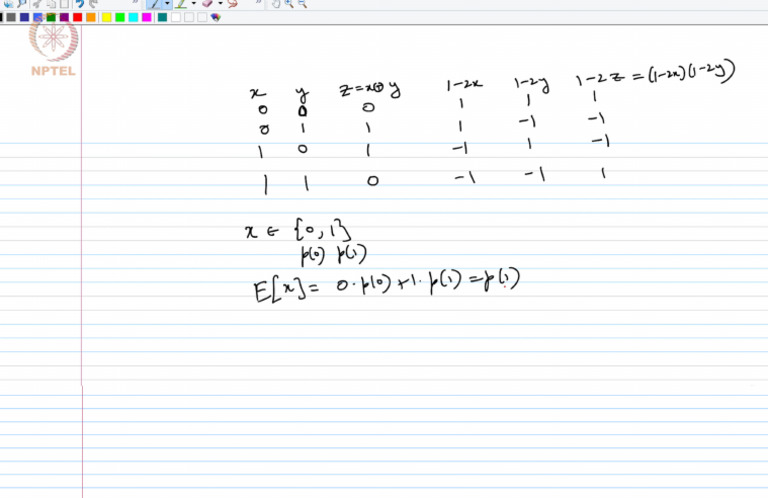 NPTEL
x y z=x⊕y 1-2x 1-2y 1-2z=(1-2x)(1-2y)
0 0 0 1 1 1
0 1 1 1 -1 -1
1 0 1 -1 1 -1
1 1 0 -1 -1 1
x ∈ {0,1}
p(0) p(1)
E[x]= 0·p(0)+1·p(1)=p(1)